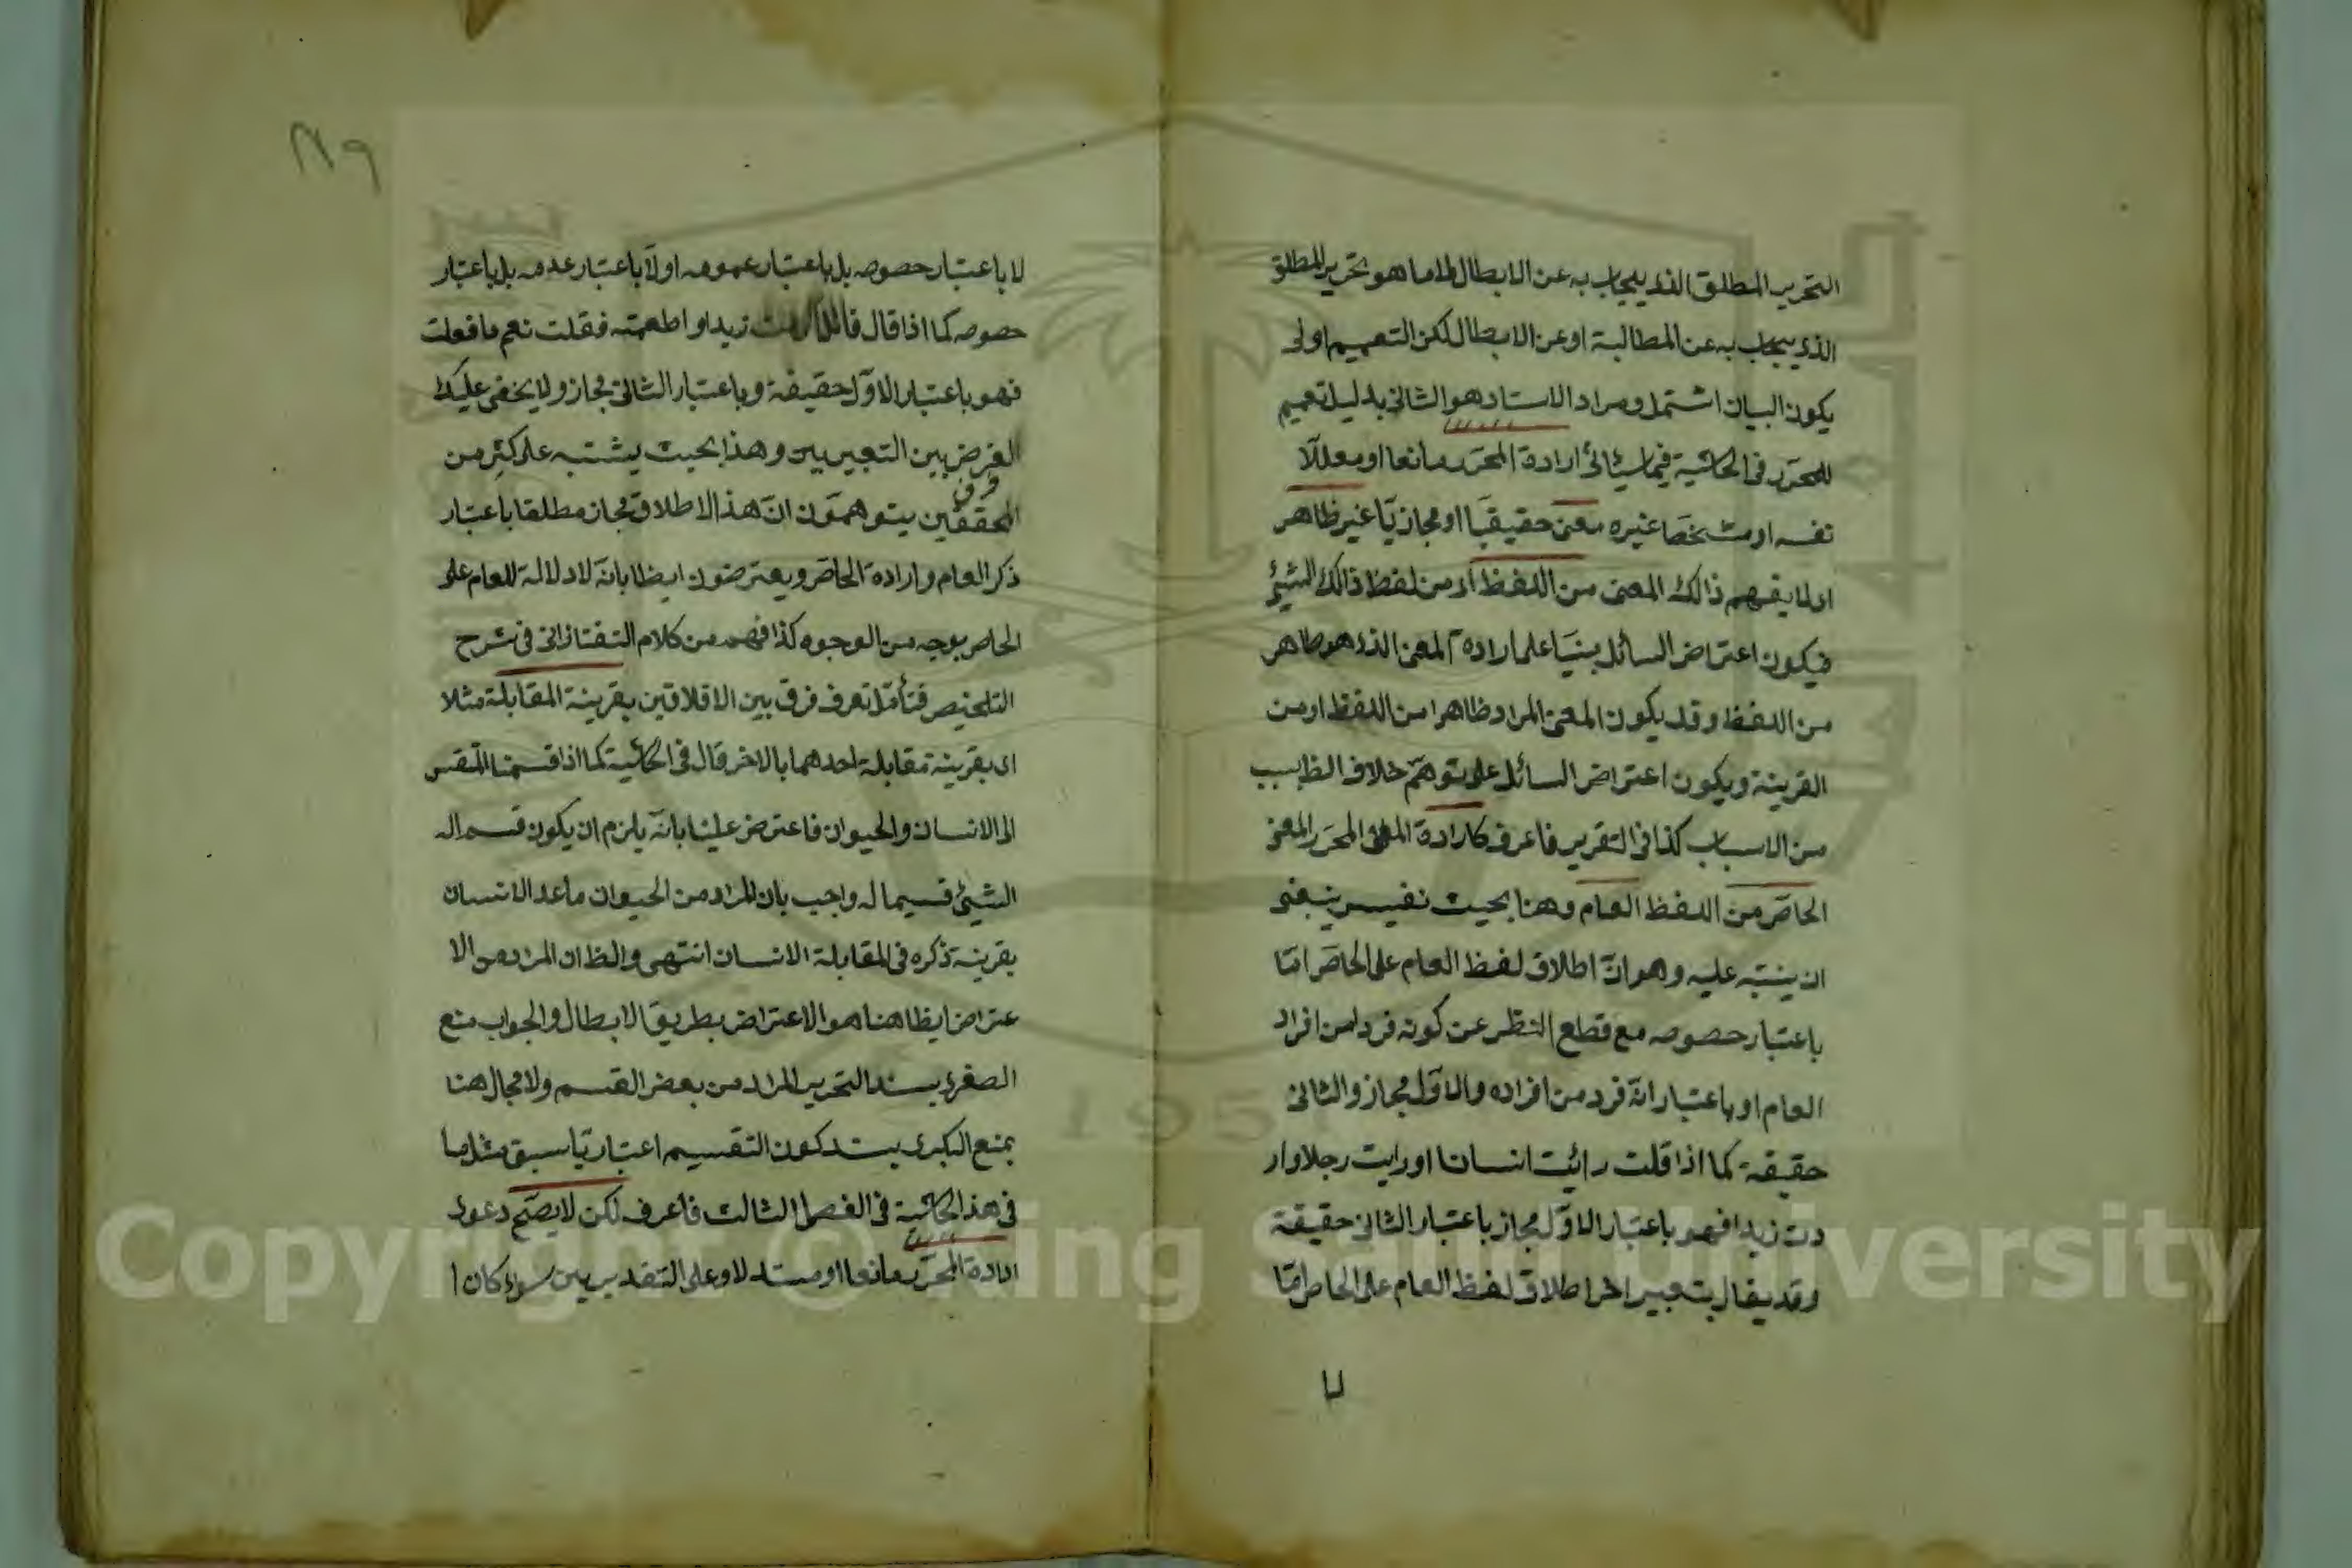 التحرير المطلق الذي يجاب به عن الابطال لا ما هو تحرير المطلق
الذي يجاب به عن المطالبة او عن الابطال لكن التعميم اولى
يكون البيان اشتمل ومراد الاستاد هو الثانى بدليل تعميم
للمحرر فى الحاشية فيما سيأتى ارادة المحرر مانعا او معللا
نفسه او شخصا غيره معنى حقيقيا او مجازيا غير ظاهر
اى لما يفهم ذالك المعنى من اللفظ اى من لفظ ذالك الشيئ
فيكون اعتراض السائل بنيا على ارادة المعنى الذى هو ظاهر
من اللفظ وقد يكون المعنى المراد ظاهرا من اللفظ او من
القرينة ويكون اعتراض السائل على توهم خلاف الظ بسبب
من الاسباب كذا فى التقرير فاعرف كارادة المحرر المعنى
الخاص من اللفظ العام وهنا بحيث نفيس ينبغى
ان ينبه عليه وهو ان اطلاق لفظ العام على الخاص اما
باعتبار حصوصه مع قطع النظر عن كونه فردا من افراد
العام او باعتبار انه فرد من افراده والاول مجاز والثانى
حقيقة كما اذا قلت رائيت انسانا او رايت رجلا وار
دت زيدا فهو باعتبار الاول مجاز باعتبار الثانى حقيقة
وقد يقال بتعبير اخر اطلاق لفظ العام على الخاص اما
لا
٢٨٩
لا باعتبار حصوصه بل باعتبار عمومه او لا باعتبار عدمه بل باعتبار
حصوصه كما اذا قال قائل زيدا او اطعمته فقلت نعم ما فعلت
فهو باعتبار الاول حقيقة وباعتبار الثانى مجاز ولا يخفى عليك
الغرض بين التعبيرين وهذا بحيث يشتبه على كثير من
فرق
المحققين يتوهمون ان هذا الاطلاق مجاز مطلقا باعتبار
ذكر العام وارادة الخاص ويعترضون ايضا بانه لا دلالة للعام على
الخاص بوجه من الوجوه كذا فهم من كلام التفتازانى فى شرح
التلخيص فتأمل تعرف فرق بين الاقلاقين بقرينة المقابلة مثلا
اى بقرينة مقابلة احدهما بالاخر قال فى الحاشية كما اذا قسمنا
الى الانسان والحيوان فاعترض علينا بانه يلزم ان يكون قسم اله
الشيئ قسيما له واجيب بان المراد من الحيوان ما عدا الانسان
بقرينة ذكره فى المقابلة الانسان انتهى والظ ان المراد من الا
عتراض ايظا هنا هو الاعتراض بطريق الابطال والجواب منع
الصغرى بسند التحرير المراد من بعض القسم ولا مجال هنا
بمنع الكبرى بسند كون التقسيم اعتباريا سبق مثل ما
فى هذ الحاشية فى الفصل الثالث فاعرف لكن لا يصح دعوى
ارادة المحرر مانعا او مستدلا وعلى التقديرين سواء كان ا
Copyright © King Saud University
1957